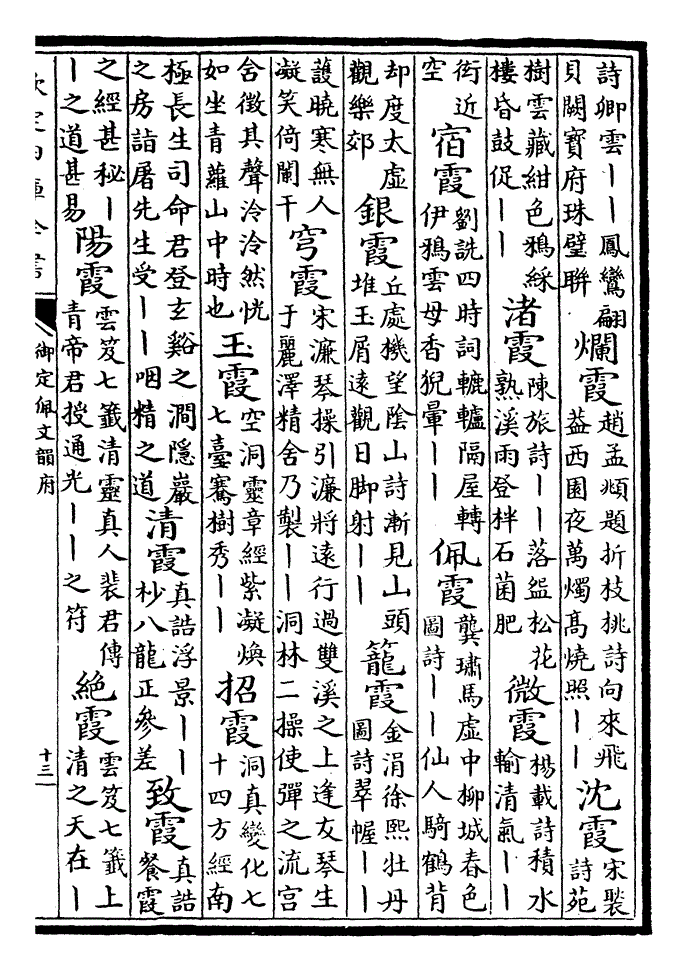 詩卿雲——鳳鸞翩貝闕寶府珠璧聨 爛霞 趙孟頫題折枝桃詩向來飛葢西園夜萬燭髙燒照—— 沈霞 宋褧詩苑
樹雲藏紺色鴉綵樓昏鼓促—— 渚霞 陳旅詩——落盌松花熟溪雨登柈石菌肥 微霞 楊載詩積水輸清氣——
街近空 宿霞 劉詵四時詞轆轤隔屋轉伊鴉雲母香猊暈—— 佩霞 龔璛馬虛中柳城春色圖詩——仙人騎鶴背
却度太虛觀樂郊 銀霞 丘處機望陰山詩漸見山頭堆玉屑遠觀日脚射—— 籠霞 金涓徐熙牡丹圖詩翠幄——
護曉寒無人凝笑倚闌干 穹霞 宋濂琴操引濂將遠行過雙溪之上逢友琴生于麗澤精舍乃製——洞林二操使彈之流宫
含徴其聲泠泠然恍如坐青蘿山中時也 玉霞 空洞靈章經紫凝煥七臺騫樹秀—— 招霞 洞真變化七十四方經南
極長生司命君登玄谿之澗隱巖之房詣屠先生受——咽精之道 清霞 真誥浮景——杪八龍正參差 致霞 真誥餐霞
之經甚秘——之道甚易 陽霞 雲笈七籤清靈真人裴君傳青帝君授通光——之符 絶霞 雲笈七籤上清之天在—
欽定四庫全書
御定佩文韻府
十三